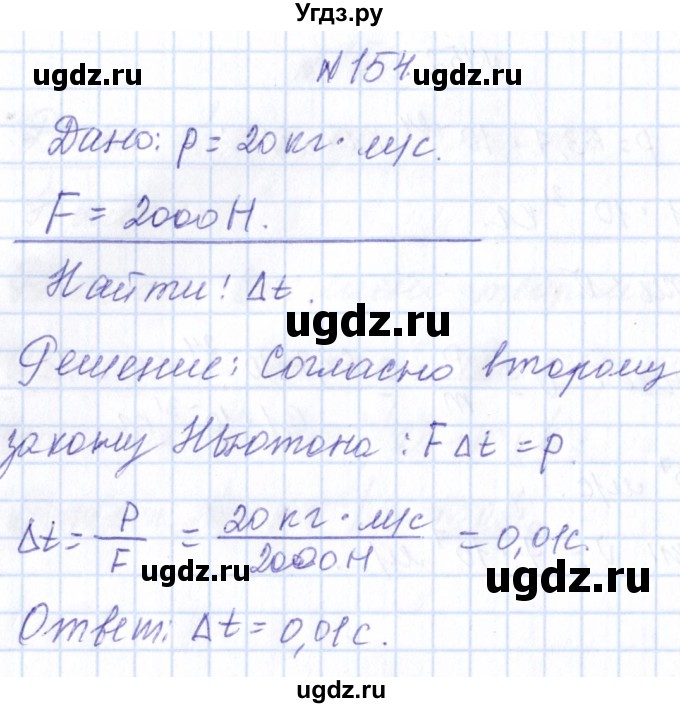 Угдз.ру
№154.
ugdz.ru ugdz.ru
Дано: p = 20 кг · м/с.
F = 2000 Н.
Найти: Δt.
ugdz.ru
Решение: Согласно второму
закону Ньютона: F Δt = p.
Δt = P/F = 20 кг · м/с / 2000 Н = 0,01 с.
ugdz.ru ugdz.ru
Ответ: Δt = 0,01 с.
ugdz.ru ugdz.ru
ugdz.ru